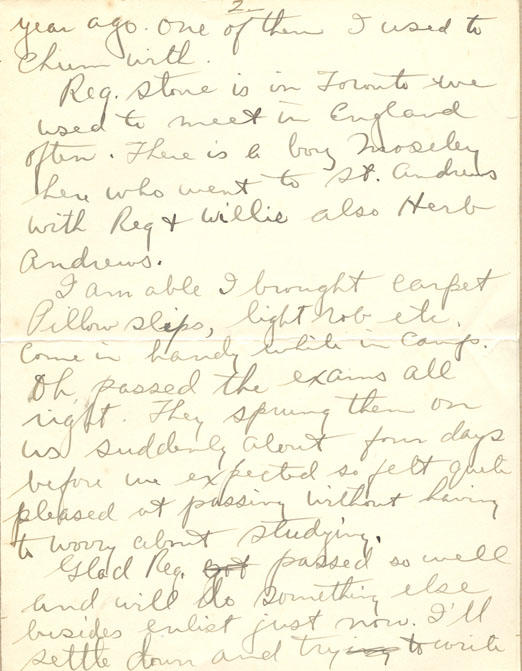 2-
year ago. One of them I used to
chum with.
Reg. Stone is in Toronto & we
used to meet in England
often. There is a boy Moseley
here who went to St. Andrews
with Reg & Willie also Herb
Andrews.
I am able I brought carpet
Pillow slips, light rob etc.
Come in handy while in Camp.
Oh, passed the exams all
right. They sprung them on
us suddenly about four days
before we expected so felt quite
pleased at passing without having
to worry about studying.
Glad Reg. got passed so well
and will do something else
besides enlist just now. I'll
settle down and trying to write